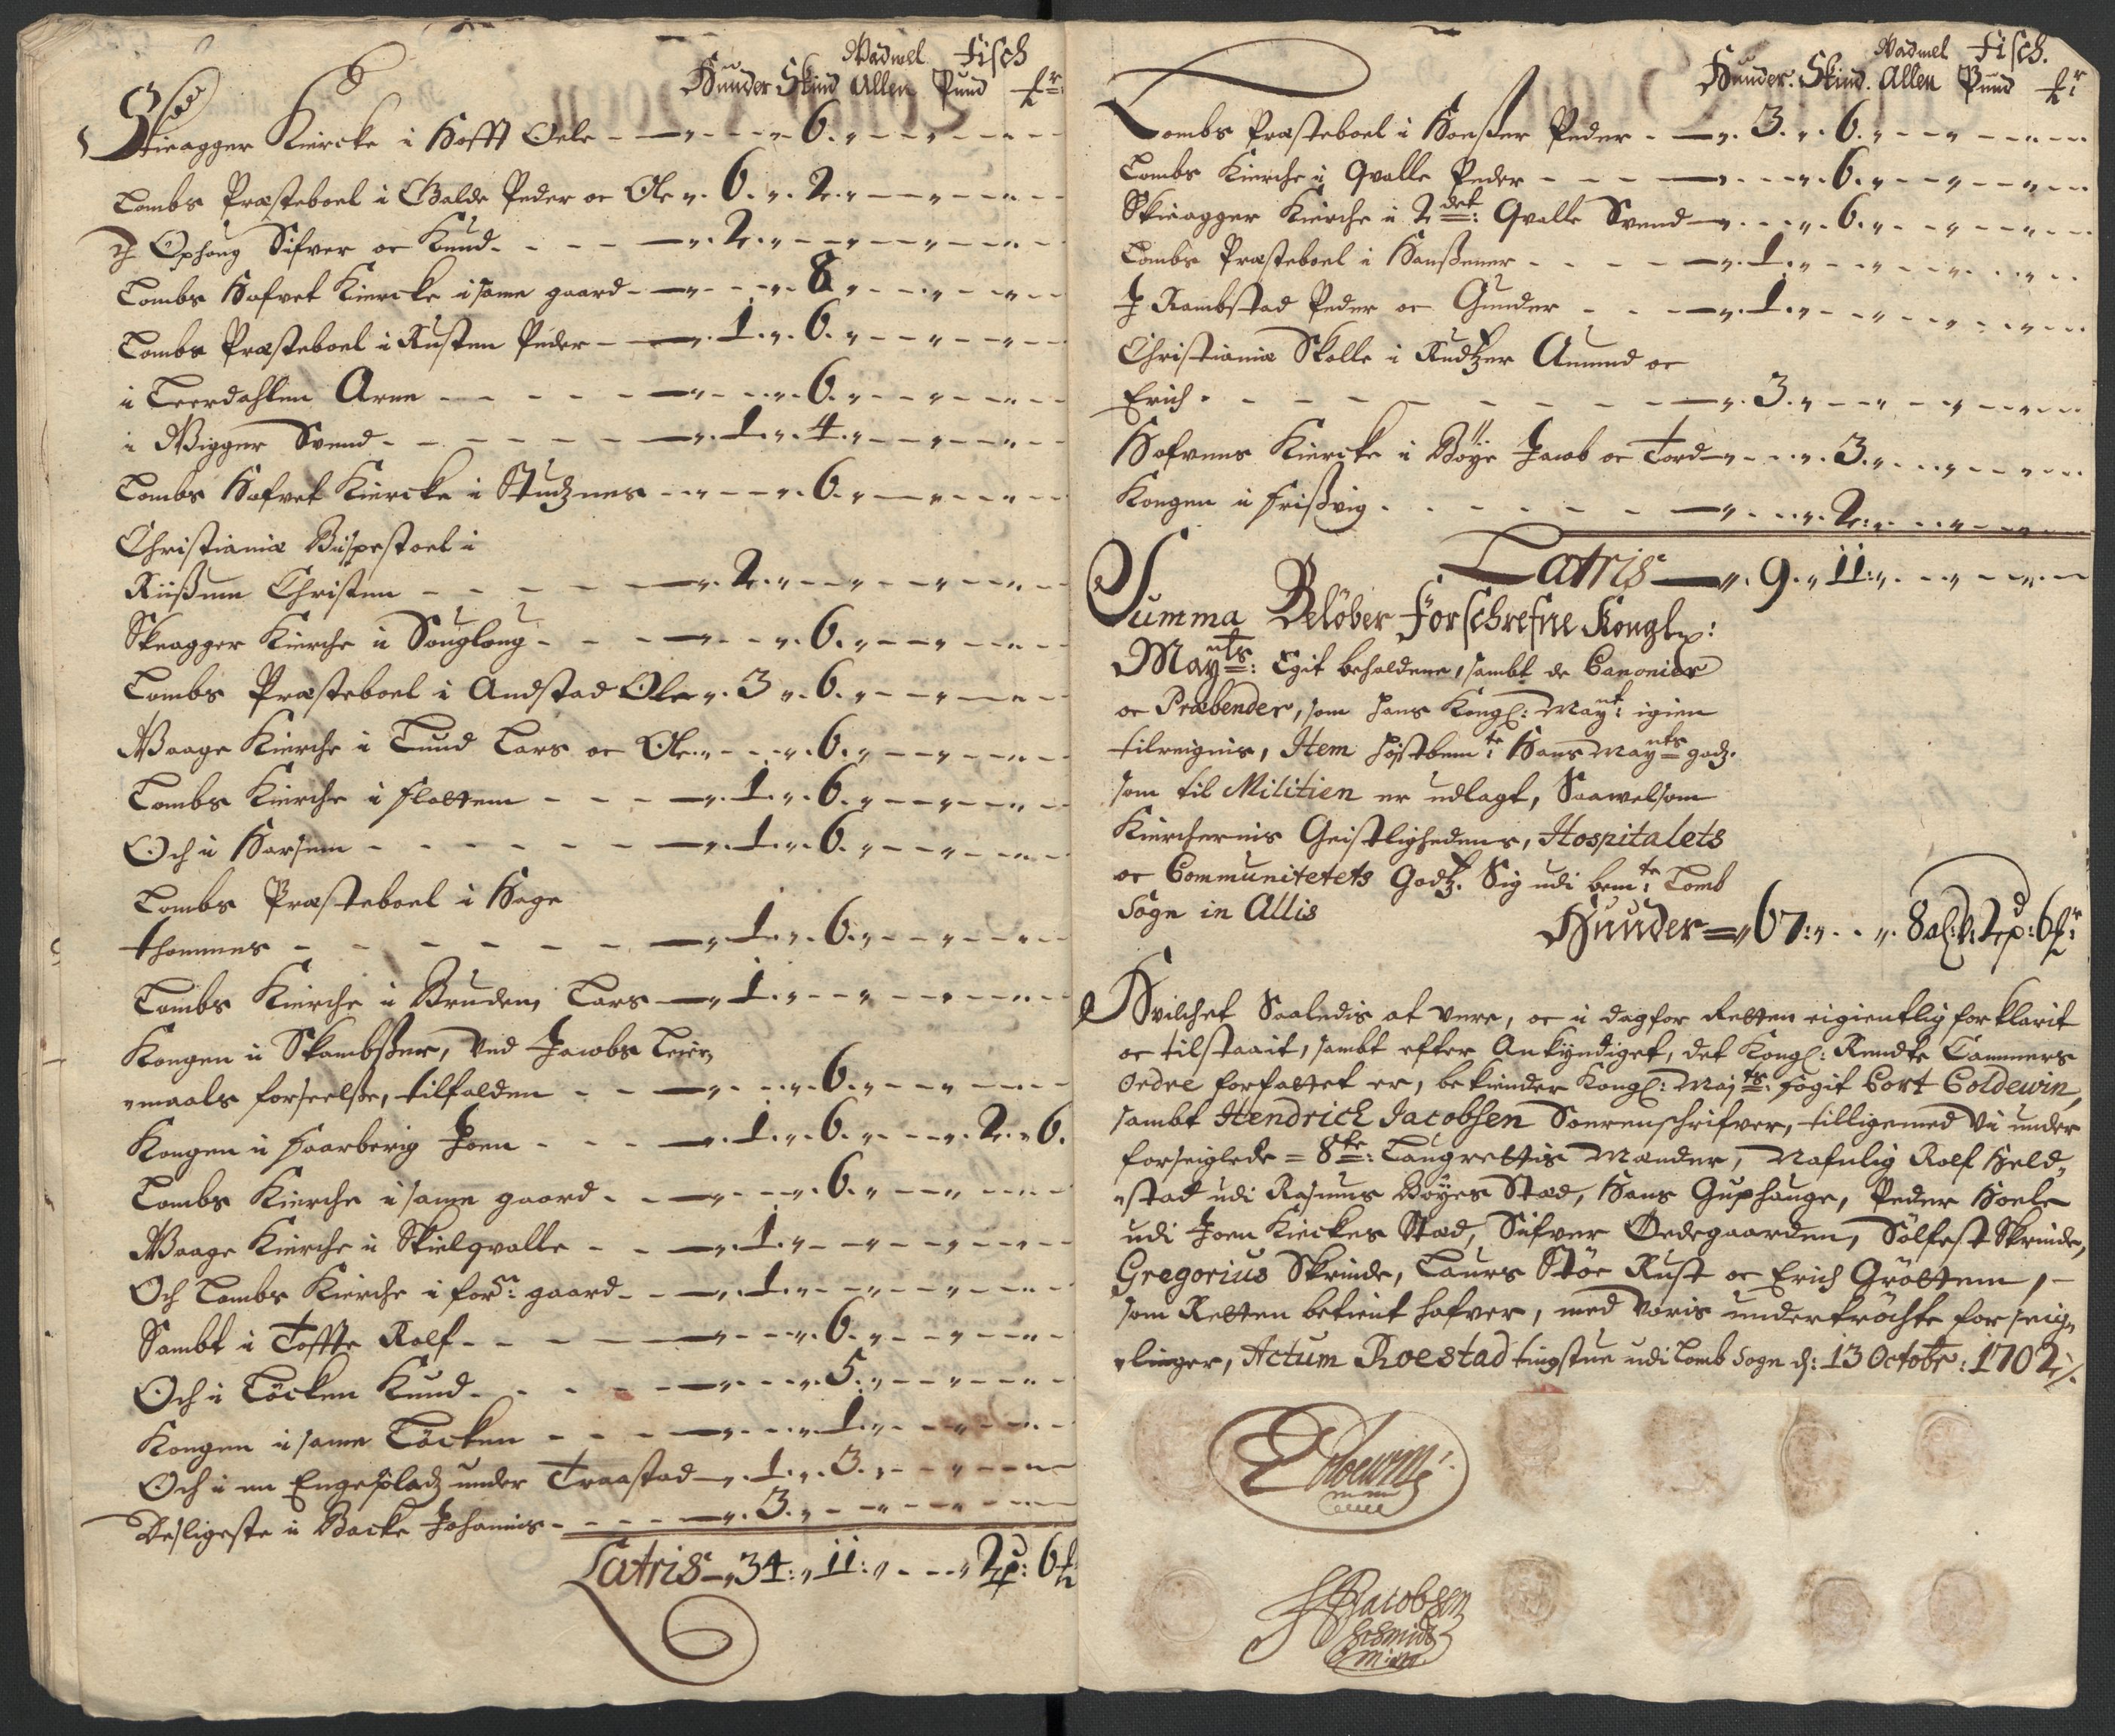 Wadmel Fisch
Hunder Skind Allen Pund
Skieagger Kiercke i Hofft Oele - 6.
Lombs Præsteboel i Galde Peder oc Ole 6. 2.
J Ophoug Sifver oc Knud - 2.
Lombs Hofvet Kiercke i same gaard - 8
Lombs Præsteboel i Rusten Peder - 1. 6.
i Leerdahlen Arne - 6.
i Wigger Svend - 1. 4.
Lombs Hofvet Kiercke i Studznes - 6.
Christianiæ Bispestoel i
Riißnm Christen - 2.
Skeagger Kierche i Souglong - 6.
Lombs Præsteboel i Andstad Ole 3 6.
Waage Kierche i Lund Lars oc Ole 6.
Lombs Kierche i Flottem - 1. 6.
Och i Horsem - 1. 6.
Lombs Præsteboel i Hage
Thommes - 1. 6.
Lombs Kierche i Bruden, Lars - 1.
Kongen i Skambßer, ved Jacobs Leier
maals forseelße, tilfalden - 6.
Kongen i Faarberig Joen - 1. 6. 2. 6.
Lombs Kierche i same gaard - 6.
Waage Kierche i Skielqvalle - 1.
Och Lombs Kierche i forn: gaard - 1.
Sambt i Toffte Rolf - 6.
Och i Löcken Knud - 5.
Kongen i same Löcken - 1.
Och i en Engepladz under Traastad - 1. 3.
Desligeste i Backe Johannis - 3.
Latris 34: 11: 2p: 6
Wadmel Fisch.
Hunder. Skind. Allen Pund
Lombs Præsteboel i Hoeßer Peder - 3. 6.
Lombs Kierche i Qvalle Peder - 6.
Skieagger Kierche i 2det: Qvalle Svend - 6.
Lombs Præsteboel i Hanßener - 1.
J Rambstad Peder oc Gunder - 1.
Christianiæ Skolle i Rudtzer Amund oc
Erich - 3.
Hofvens Kiercke i Böÿe Jacob oc Tord - 3.
Kongen i Frißvig - 2.
Latris 9. 11:
Summa Belöber Forschrefne Kongl:
Mayts: Egit beholdene, sambt de Canonier
oc Præbender, som hans Kongl: Mayt: igien
tilreignis, Item höistbemte: Hans Mayts godz.
som til Militien er udlagt, Saawelsom
Kierchernis Geistlighedens, Hospitalets
oc Communitetets Godtz. Sig udi bemte: Lomb
Sogn in Allis Hunder 67: 8 al: 2p: 6
Hvilchet Saaledis at være, oc i dag for Retten eigientlig forklarit
oc tilstaait, sambt efter Ankyndiget, det Kongl: Rendte Cammers
Ordre forfattet er, bekiender Kongl: Majts: fogit Cort Coldewin,
sambt Hendrich Jacobsen Soerenschrifver, tilligemed vii under
forseiglede = 8te: Laugrettis Mænder, Nafnlig Rolf Held
stad udi Rasmus Böÿes Stæd, Hans Guphauge, Peder Hoele
udi Joen Kieckes Stæd, Sifver Ordegaarden, Sölfest Skrinde,
Gregorius Skrinde, Laurs Stöe Rust oc Erich Gröttem,
som Retten betient hafver, med voris undertröchte forseig
linger, Actum Roestad tingstue udi Lomb Sogn d: 13 Octobr: 1702
Coldewin
HJacobsen
Schmidt